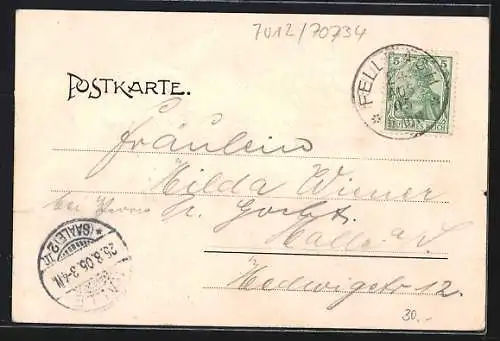 7012/70734
POSTKARTE.
5 5
FELLBACH
Fräulein
Hilda Wiener
bei Herrn Gocht
Halle a/S.
Hedwigstr 12.
(SAALE) 2
25.8.05. 3-4N.
30.-